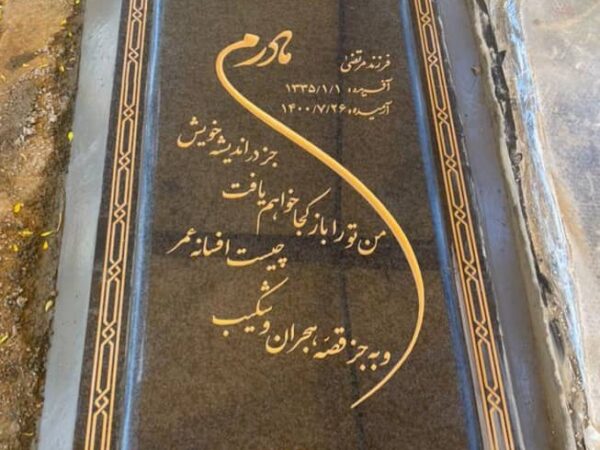 مادرم
فرزند مرتضی
آفریده: ۱۳۳۵/۱/۱
آرمیده: ۱۴۰۰/۷/۲۶
جز در اندیشه خویش
من تو را باز کجا خواهم یافت
چیست افسانه عمر
و به جز قصه هجران و شکیب